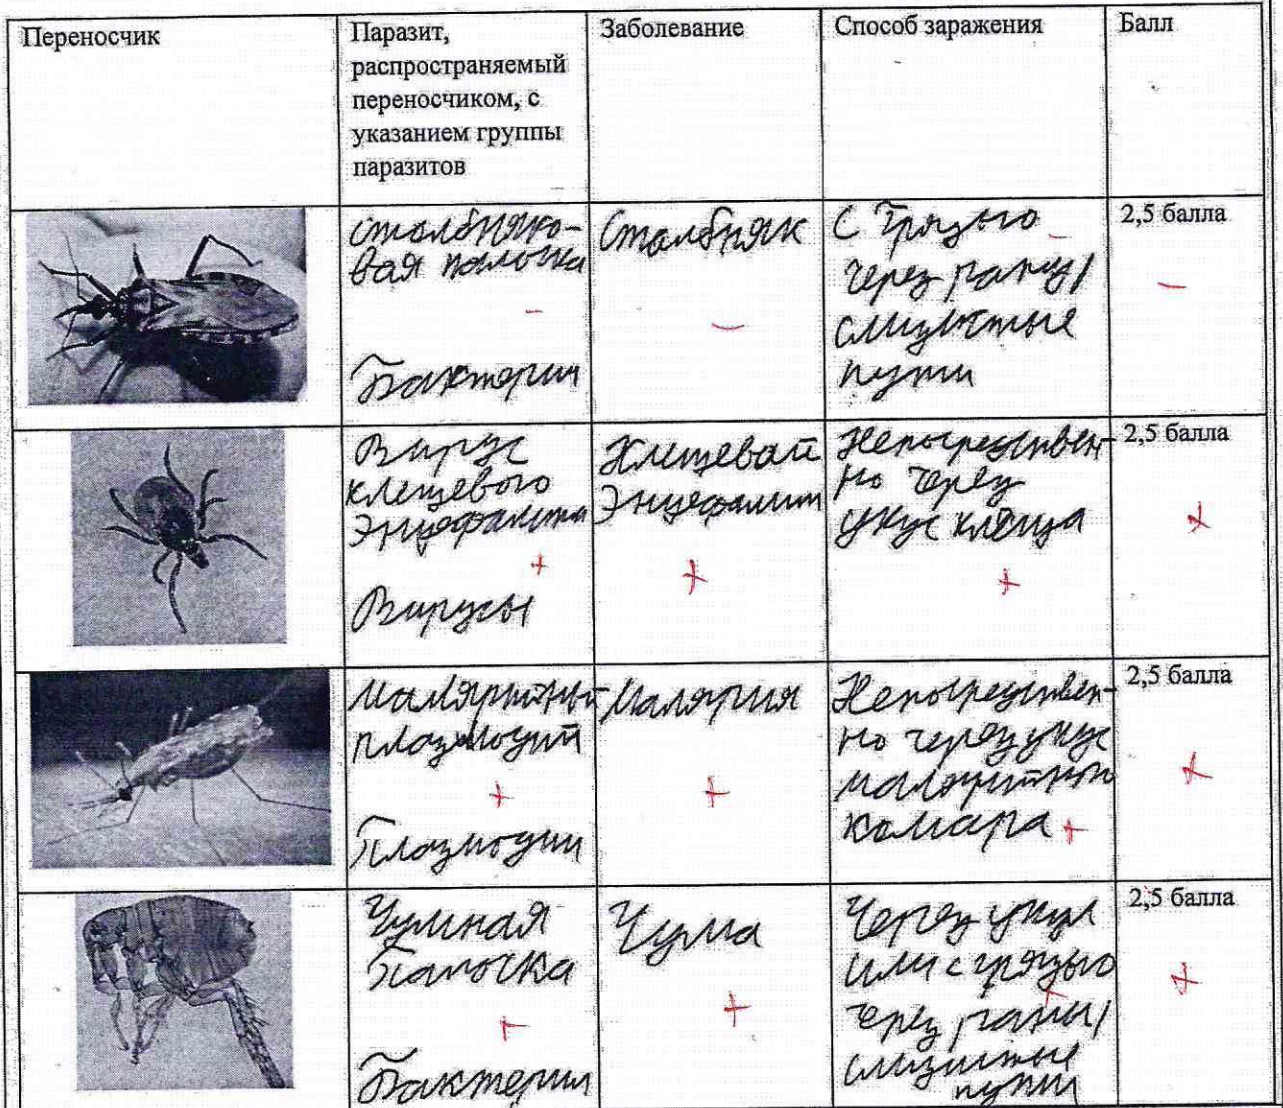 Переносчик
Паразит,
распространяемый
переносчиком, с
указанием группы
паразитов
Заболевание
Способ заражения
Балл
столбняко-
вая палочка
-
Бактерии
Столбняк
-
С грязью -
через раны/
слизистые
пути
2,5 балла
-
Вирус
клещевого
энцефалита
+
Вирусы
Клещевой
энцефалит
+
Непосредствен-
но через
укус клеща
+
2,5 балла
+
Малярийный
плазмодий
+
Плазмодии
Малярия
+
Непосредствен-
но через укус
малярийного
комара +
2,5 балла
+
Чумная
палочка
+
Бактерии
Чума
+
Через укус
или с грязью
+
через раны/
слизистые
пути
2,5 балла
+